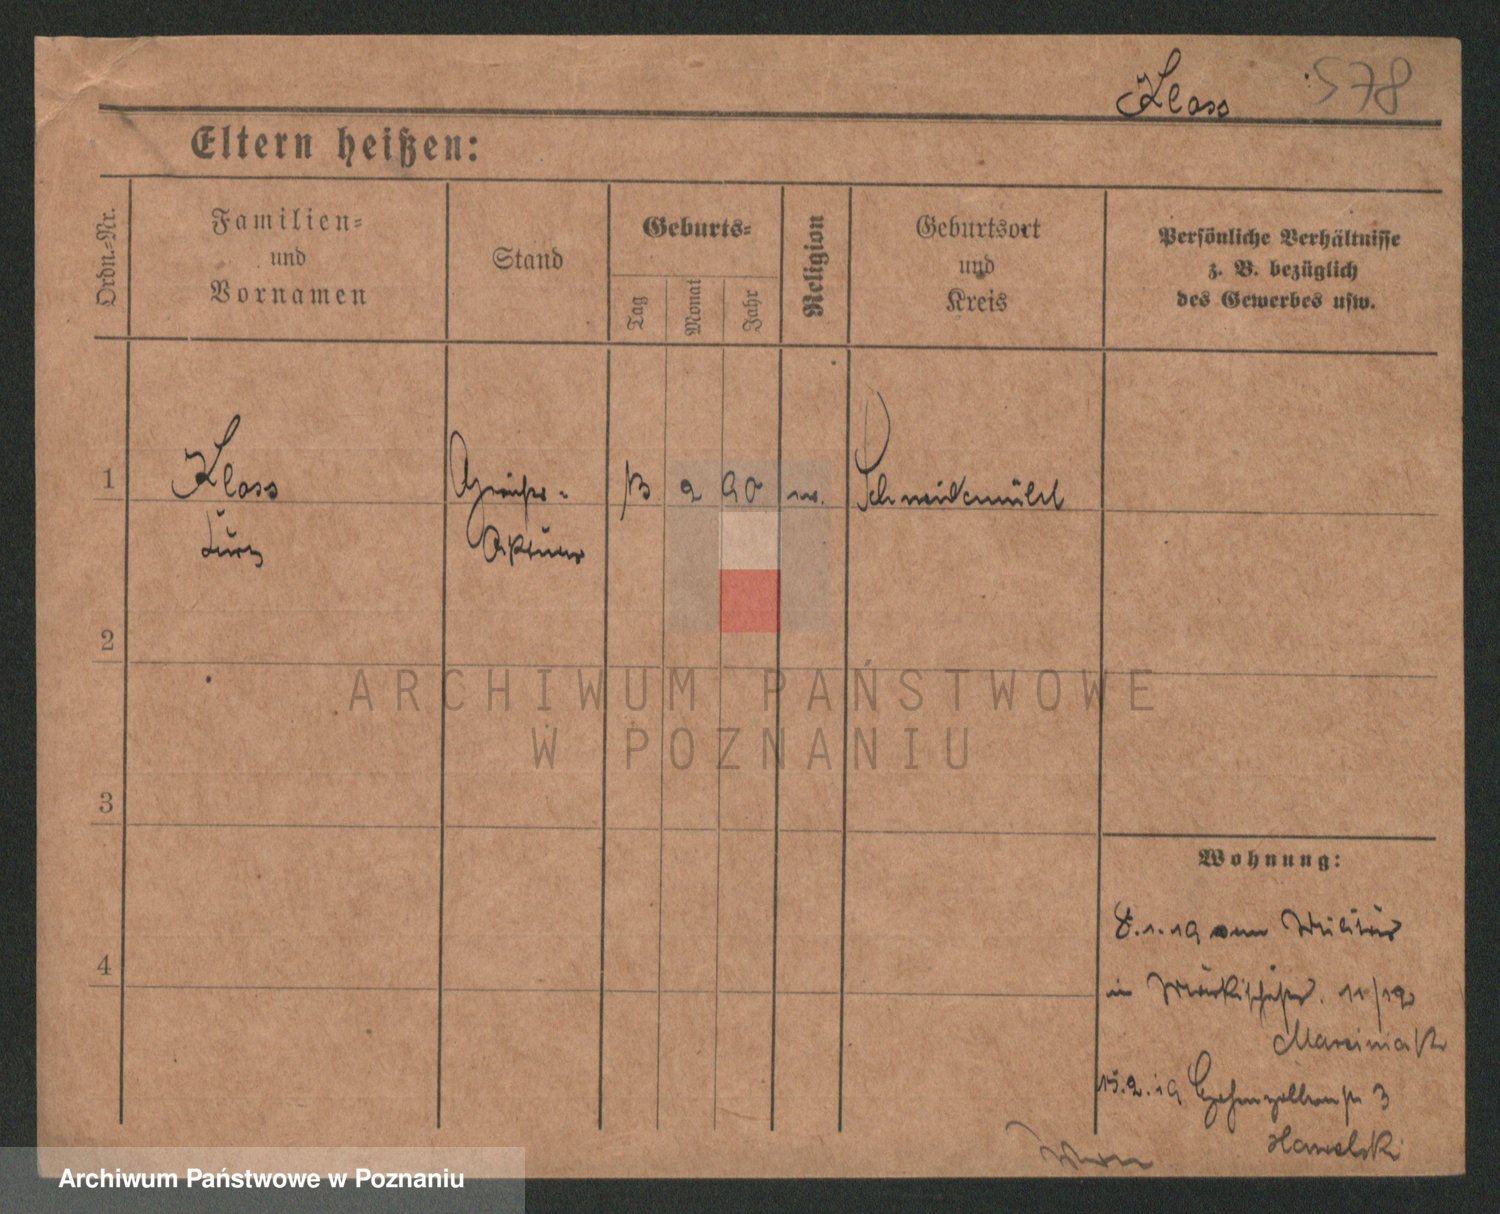 Klass 578
Eltern heißen:
Ordn.-Nr.
Familien-
und
Vornamen
Stand
Geburts-
Tag
Monat
Jahr
Religion
Geburtsort
und
Kreis
Persönliche Verhältnisse
z. B. bezüglich
des Gewerbes usw.
1 Klass 2 90 Schneidemühl
Kurz
2
3
4
ARCHIWUM PAŃSTWOWE
W POZNANIU
Wohnung:
8.1.19 vom Militär
in 11/12
Marciniak
15.2.19 3
Hawelski
Archiwum Państwowe w Poznaniu